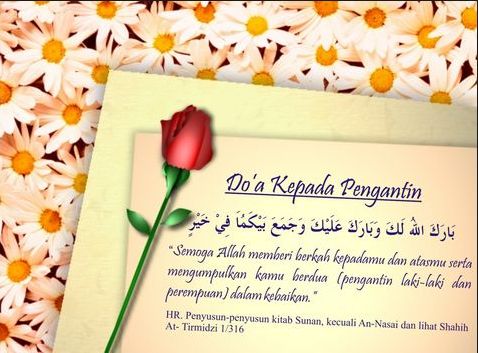 Do'a Kepada Pengantin
بَارَكَ اللهُ لَكَ وَبَارَكَ عَلَيْكَ وَجَمَعَ بَيْنَكُمَا فِيْ خَيْرٍ
"Semoga Allah memberi berkah kepadamu dan atasmu serta
mengumpulkan kamu berdua (pengantin laki-laki dan
perempuan) dalam kebaikan."
HR. Penyusun-penyusun kitab Sunan, kecuali An-Nasai dan lihat Shahih
At- Tirmidzi 1/316